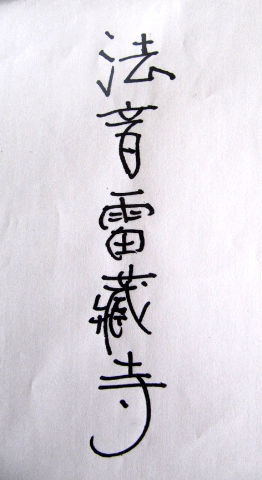 法音雷藏寺